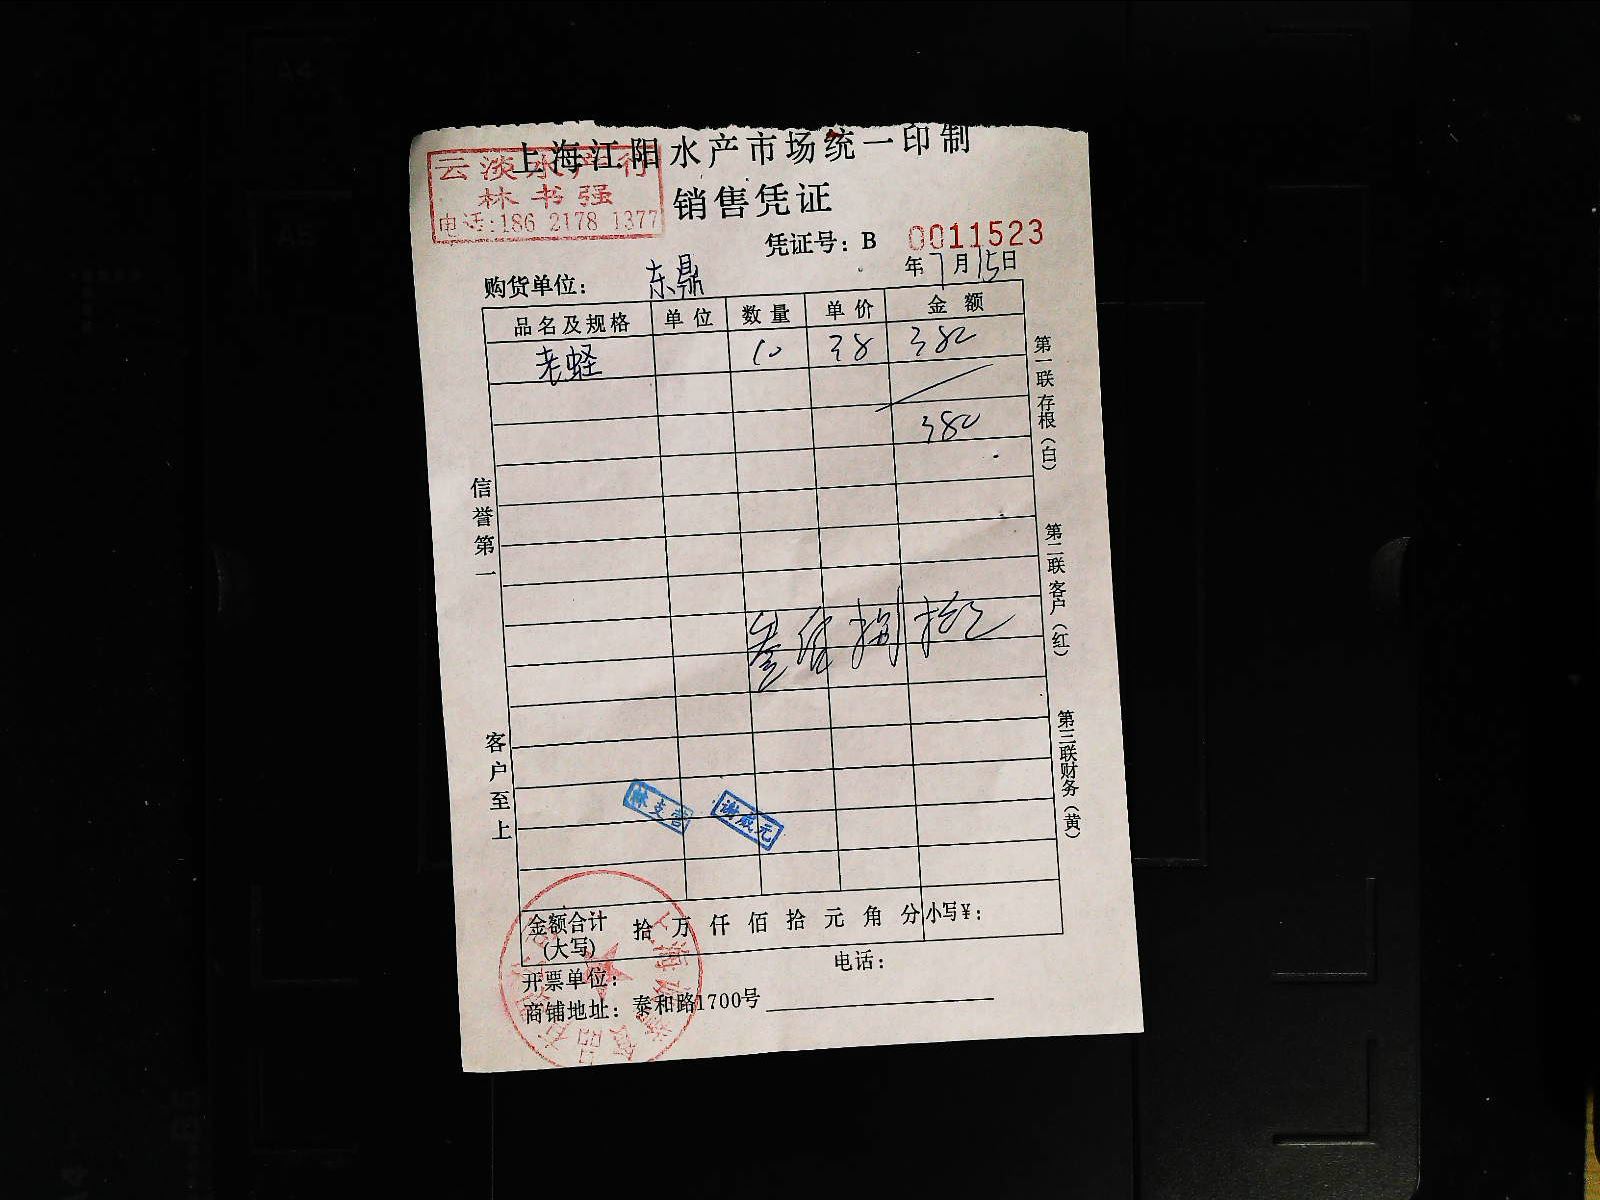 上海江阳水产市场统一印制
云淡水产行
林书强
电话:186 2178 1377
销售凭证
凭证号：B 0011523
年 7 月 15 日
购货单位： 东鼎
品名及规格 单位 数量 单价 金额
老蛏 10 38 380
380
叁佰捌拾元
信誉第一
客户至上
第一联存根（白）
第二联客户（红）
第三联财务（黄）
谢咸元
金额合计(大写) 拾 万 仟 佰 拾 元 角 分 小写¥：
开票单位： 电话：
商铺地址：泰和路1700号